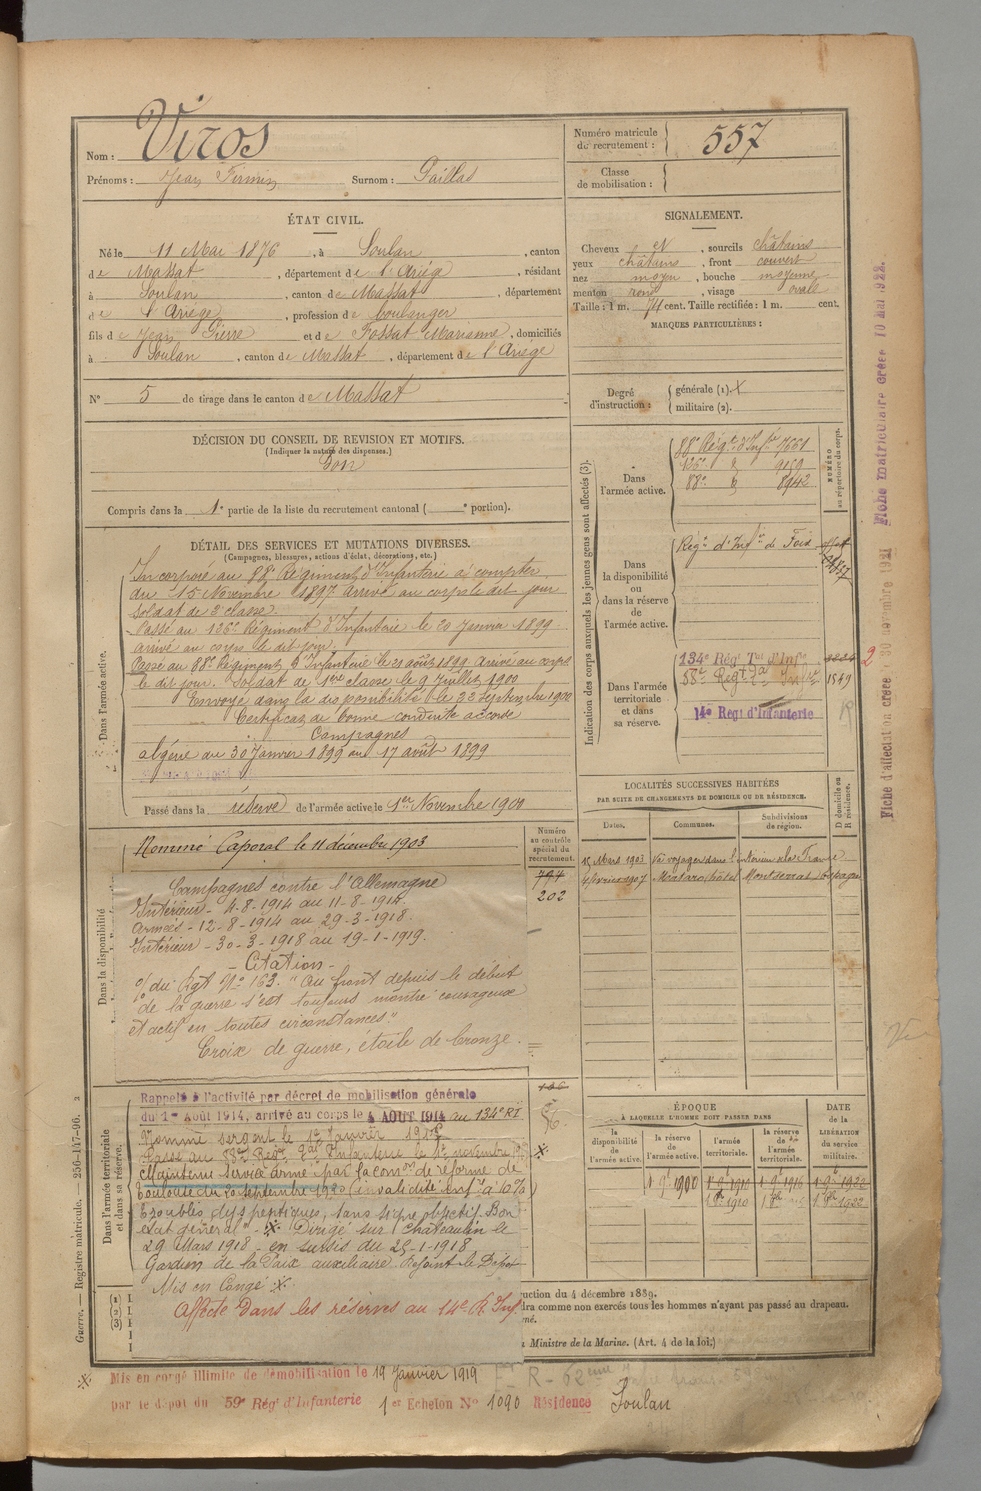 Nom : Viros
Prénoms : Jean Firmin Surnom : Paillas
Numéro matricule du recrutement : 557
Classe de mobilisation :
ÉTAT CIVIL.
Né le 11 Mai 1876, à Soulan, canton
de Massat, département de l'Ariège, résidant
à Soulan, canton de Massat, département
de l'Ariège, profession de boulanger
fils de Jean Pierre et de Fossat Marianne, domiciliés
à Soulan, canton de Massat, département de l'Ariège
N° 5 de tirage dans le canton de Massat
SIGNALEMENT.
Cheveux et, sourcils châtains
yeux châtains, front couvert
nez moyen, bouche moyenne
menton rond, visage ovale
Taille : 1 m. 74 cent. Taille rectifiée : 1 m. cent.
MARQUES PARTICULIÈRES :
Degré d'instruction : générale (1). X
militaire (2).
DÉCISION DU CONSEIL DE REVISION ET MOTIFS.
(Indiquer la nature des dispenses.)
Bon
Compris dans la 1e partie de la liste du recrutement cantonal ( e portion).
DÉTAIL DES SERVICES ET MUTATIONS DIVERSES.
(Campagnes, blessures, actions d'éclat, décorations, etc.)
Dans l'armée active.
Incorporé au 88e Régiment d'Infanterie à compter
du 15 Novembre 1897 arrivé au corps le dit jour
soldat de 2e classe.
Passé au 126e Régiment d'Infanterie le 20 Janvier 1899
arrivé au corps le dit jour.
Passé au 88e Régiment d'Infanterie le 21 août 1899 arrivé au corps
le dit jour. Soldat de 1ère classe le 9 Juillet 1900
Envoyé dans la disponibilité le 22 septembre 1900
Certificat de bonne conduite accordé
Campagnes
Algérie du 30 Janvier 1899 au 17 août 1899
Passé dans la réserve de l'armée active le 1er Novembre 1900
Dans la disponibilité
Nommé Caporal le 11 décembre 1903
Campagnes contre l'Allemagne
Intérieur - 4-8-1914 au 11-8-1914.
Armées - 12-8-1914 au 29-3-1918.
Intérieur - 30-3-1918 au 19-1-1919.
- Citation -
O/ du Rgt N° 163. "Au front depuis le début
de la guerre s'est toujours montré courageux
et actif en toutes circonstances"
Croix de guerre, étoile de bronze.
Dans l'armée territoriale et dans sa réserve.
Rappelé à l'activité par décret de mobilisation générale
du 1er Août 1914, arrivé au corps le 4 AOUT 1914 au 134e RT
Nommé sergent le 1er Janvier
Passé au 58e Régt Tal Infanterie le 1er novembre
Maintenu service armé par la Comon de réforme de
Toulouse du 20 septembre 1920 (invalidité inf re à 10%)
Troubles dyspeptiques, sans signe objectif. Bon
état général" - Dirigé sur Chateaulin le
29 Mars 1918 - en sursis du 25-1-1918
Gardien de la Paix auxiliaire. Rejoint le Dépôt
Mis en Congé
Affecté dans les réserves au 14e R. Inf.
Mis en congé illimité de démobilisation le 19 Janvier 1919
par le dépôt du 59e Rég' d'Infanterie 1er Echelon N° 1090 Résidence Soulan
Numéro au contrôle spécial du recrutement.
794
202
Indication des corps auxquels les jeunes gens sont affectés (3).
NUMÉRO au répertoire du corps.
Dans l'armée active.
88e Régt d'Infie 7661
126e d° 9159
88e d° 8942
Dans la disponibilité ou dans la réserve de l'armée active.
Régt d'Infie de Foix
Dans l'armée territoriale et dans sa réserve.
134e Rég' Tal d'Infie
58e Régt Tal Infie 1849
14e Reg' d'Infanterie
2
R
LOCALITÉS SUCCESSIVES HABITÉES
PAR SUITE DE CHANGEMENTS DE DOMICILE OU DE RÉSIDENCE.
Dates. Communes. Subdivisions de région. D domicile ou R résidence.
15 Mars 1903 Va voyager dans l'intérieur de la France
4 février 1907 Mataro, hôtel Montserrat, Espagne
ÉPOQUE
À LAQUELLE L'HOMME DOIT PASSER DANS
la disponibilité de l'armée active. la réserve de l'armée active. l'armée territoriale. la réserve de l'armée territoriale.
DATE de la LIBÉRATION du service militaire.
1-9-1900 1-9-1910 1-9-1916 1-9-1922
uction du 4 décembre 1889.
dra comme non exercés tous les hommes n'ayant pas passé au drapeau.
Ministre de la Marine. (Art. 4 de la loi.)
Guerre. — Registre matricule. — 256-147-96.
Fiche matriculaire créée 10 Mai 1922.
Fiche d'affectation créée 30 novembre 1921